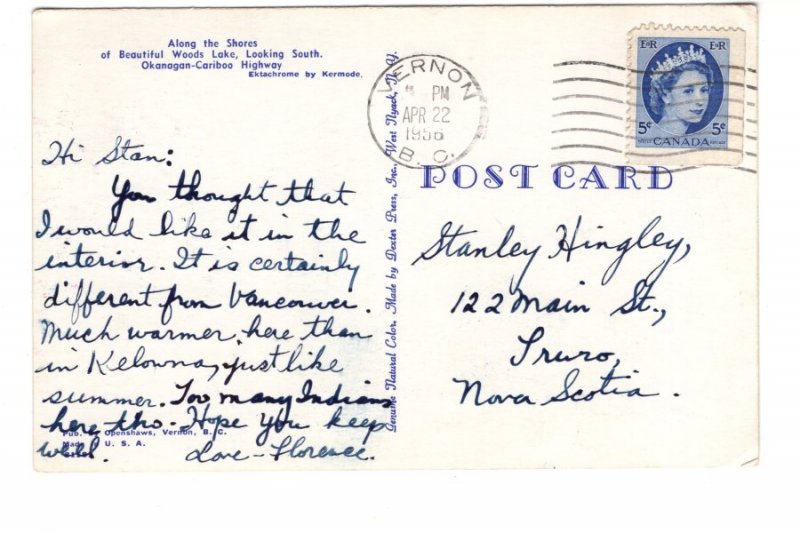 Along the Shores
of Beautiful Woods Lake, Looking South.
Okanagan-Cariboo Highway
Ektachrome by Kermode.
Hi Stan:
You thought that
I would like it in the
interior. It is certainly
different from Vancouver.
Much warmer, here than
in Kelowna, just like
summer. Too many Indians
here tho. Hope you keep
well. Love - Florence.
Pub. Openshaws, Vernon, B. C.
Made U. S. A.
Genuine Natural Color, Made by Dexter Press, Inc., West Nyack, N. Y.
VERNON
PM
APR 22
1956
B. C.
E II R E II R
5¢ 5¢
CANADA
POST CARD
Stanley Hingley,
122 Main St.,
Truro,
Nova Scotia.